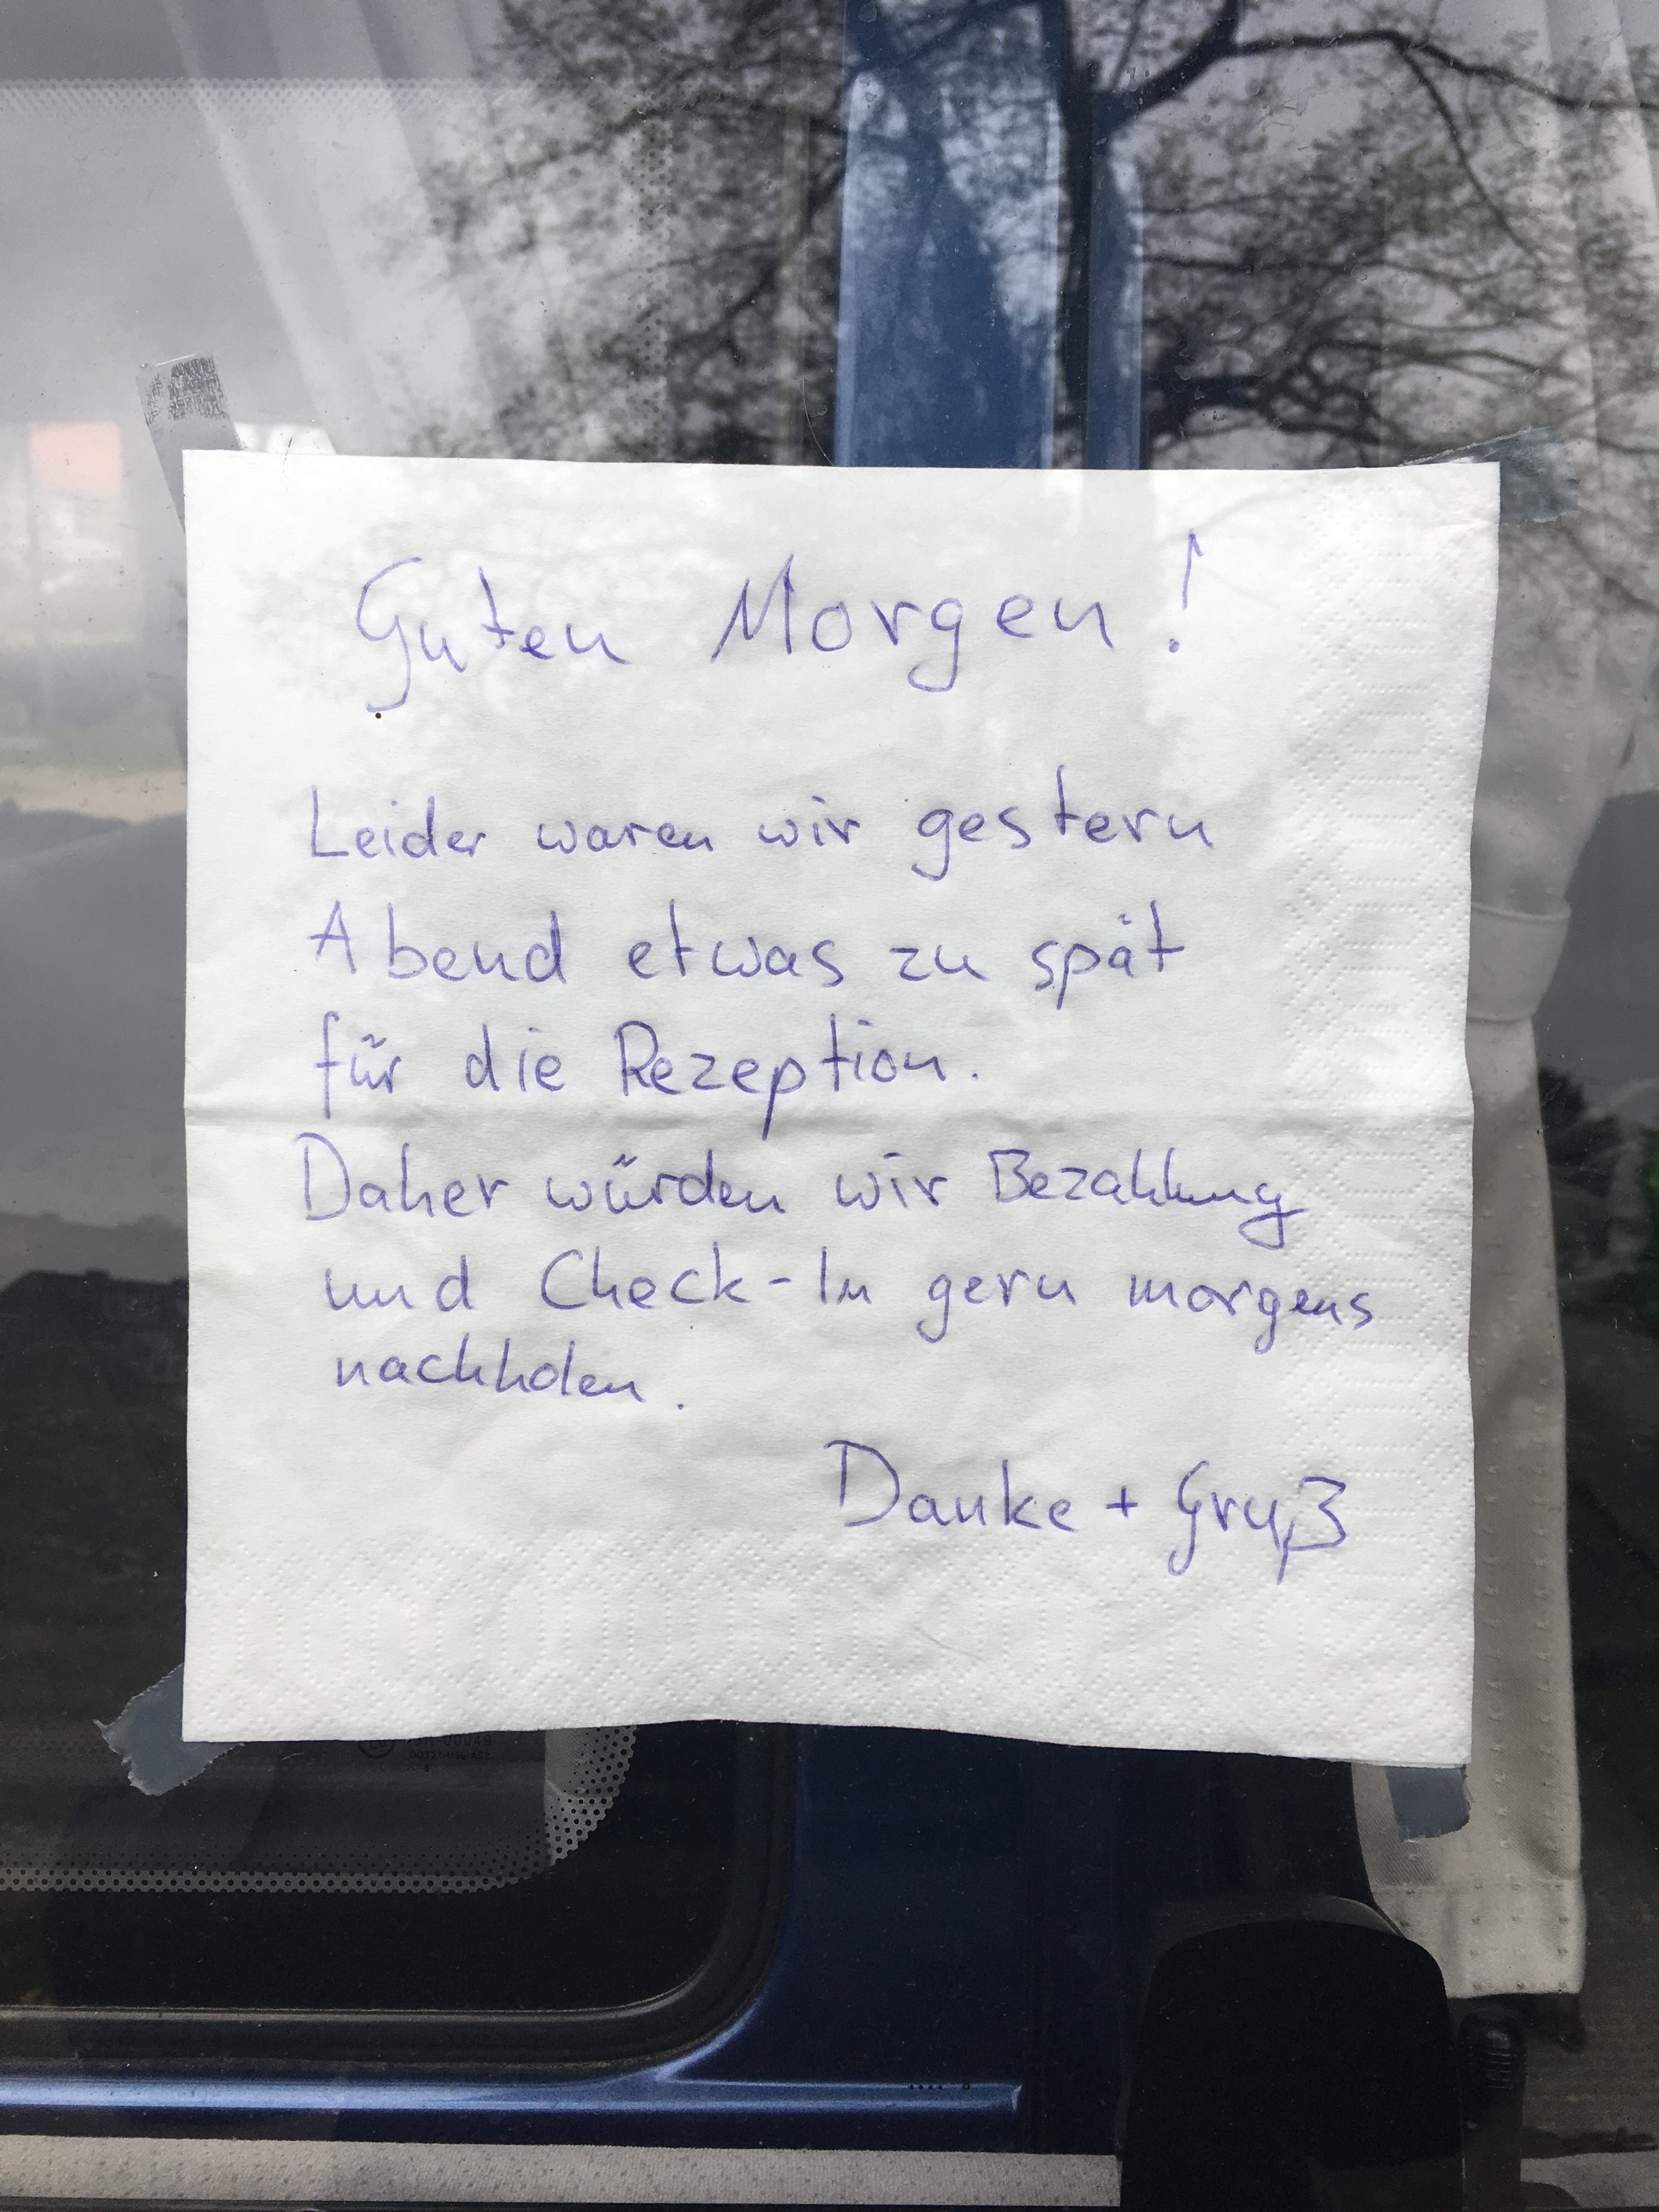 Guten Morgen!
Leider waren wir gestern
Abend etwas zu spät
für die Rezeption.
Daher würden wir Bezahlung
und Check-In gern morgens
nachholen.
Danke + Gruß